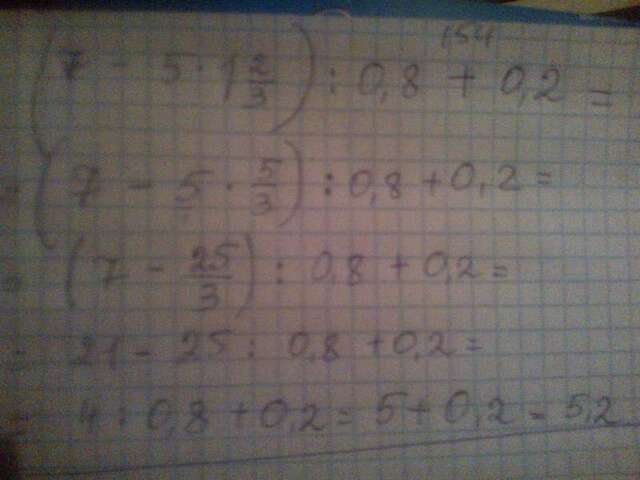 154
(7 - 5 · 1 2/3) : 0,8 + 0,2 =
= (7 - 5 · 5/3) : 0,8 + 0,2 =
= (7 - 25/3) : 0,8 + 0,2 =
= 21 - 25 : 0,8 + 0,2 =
= 4 : 0,8 + 0,2 = 5 + 0,2 = 5,2